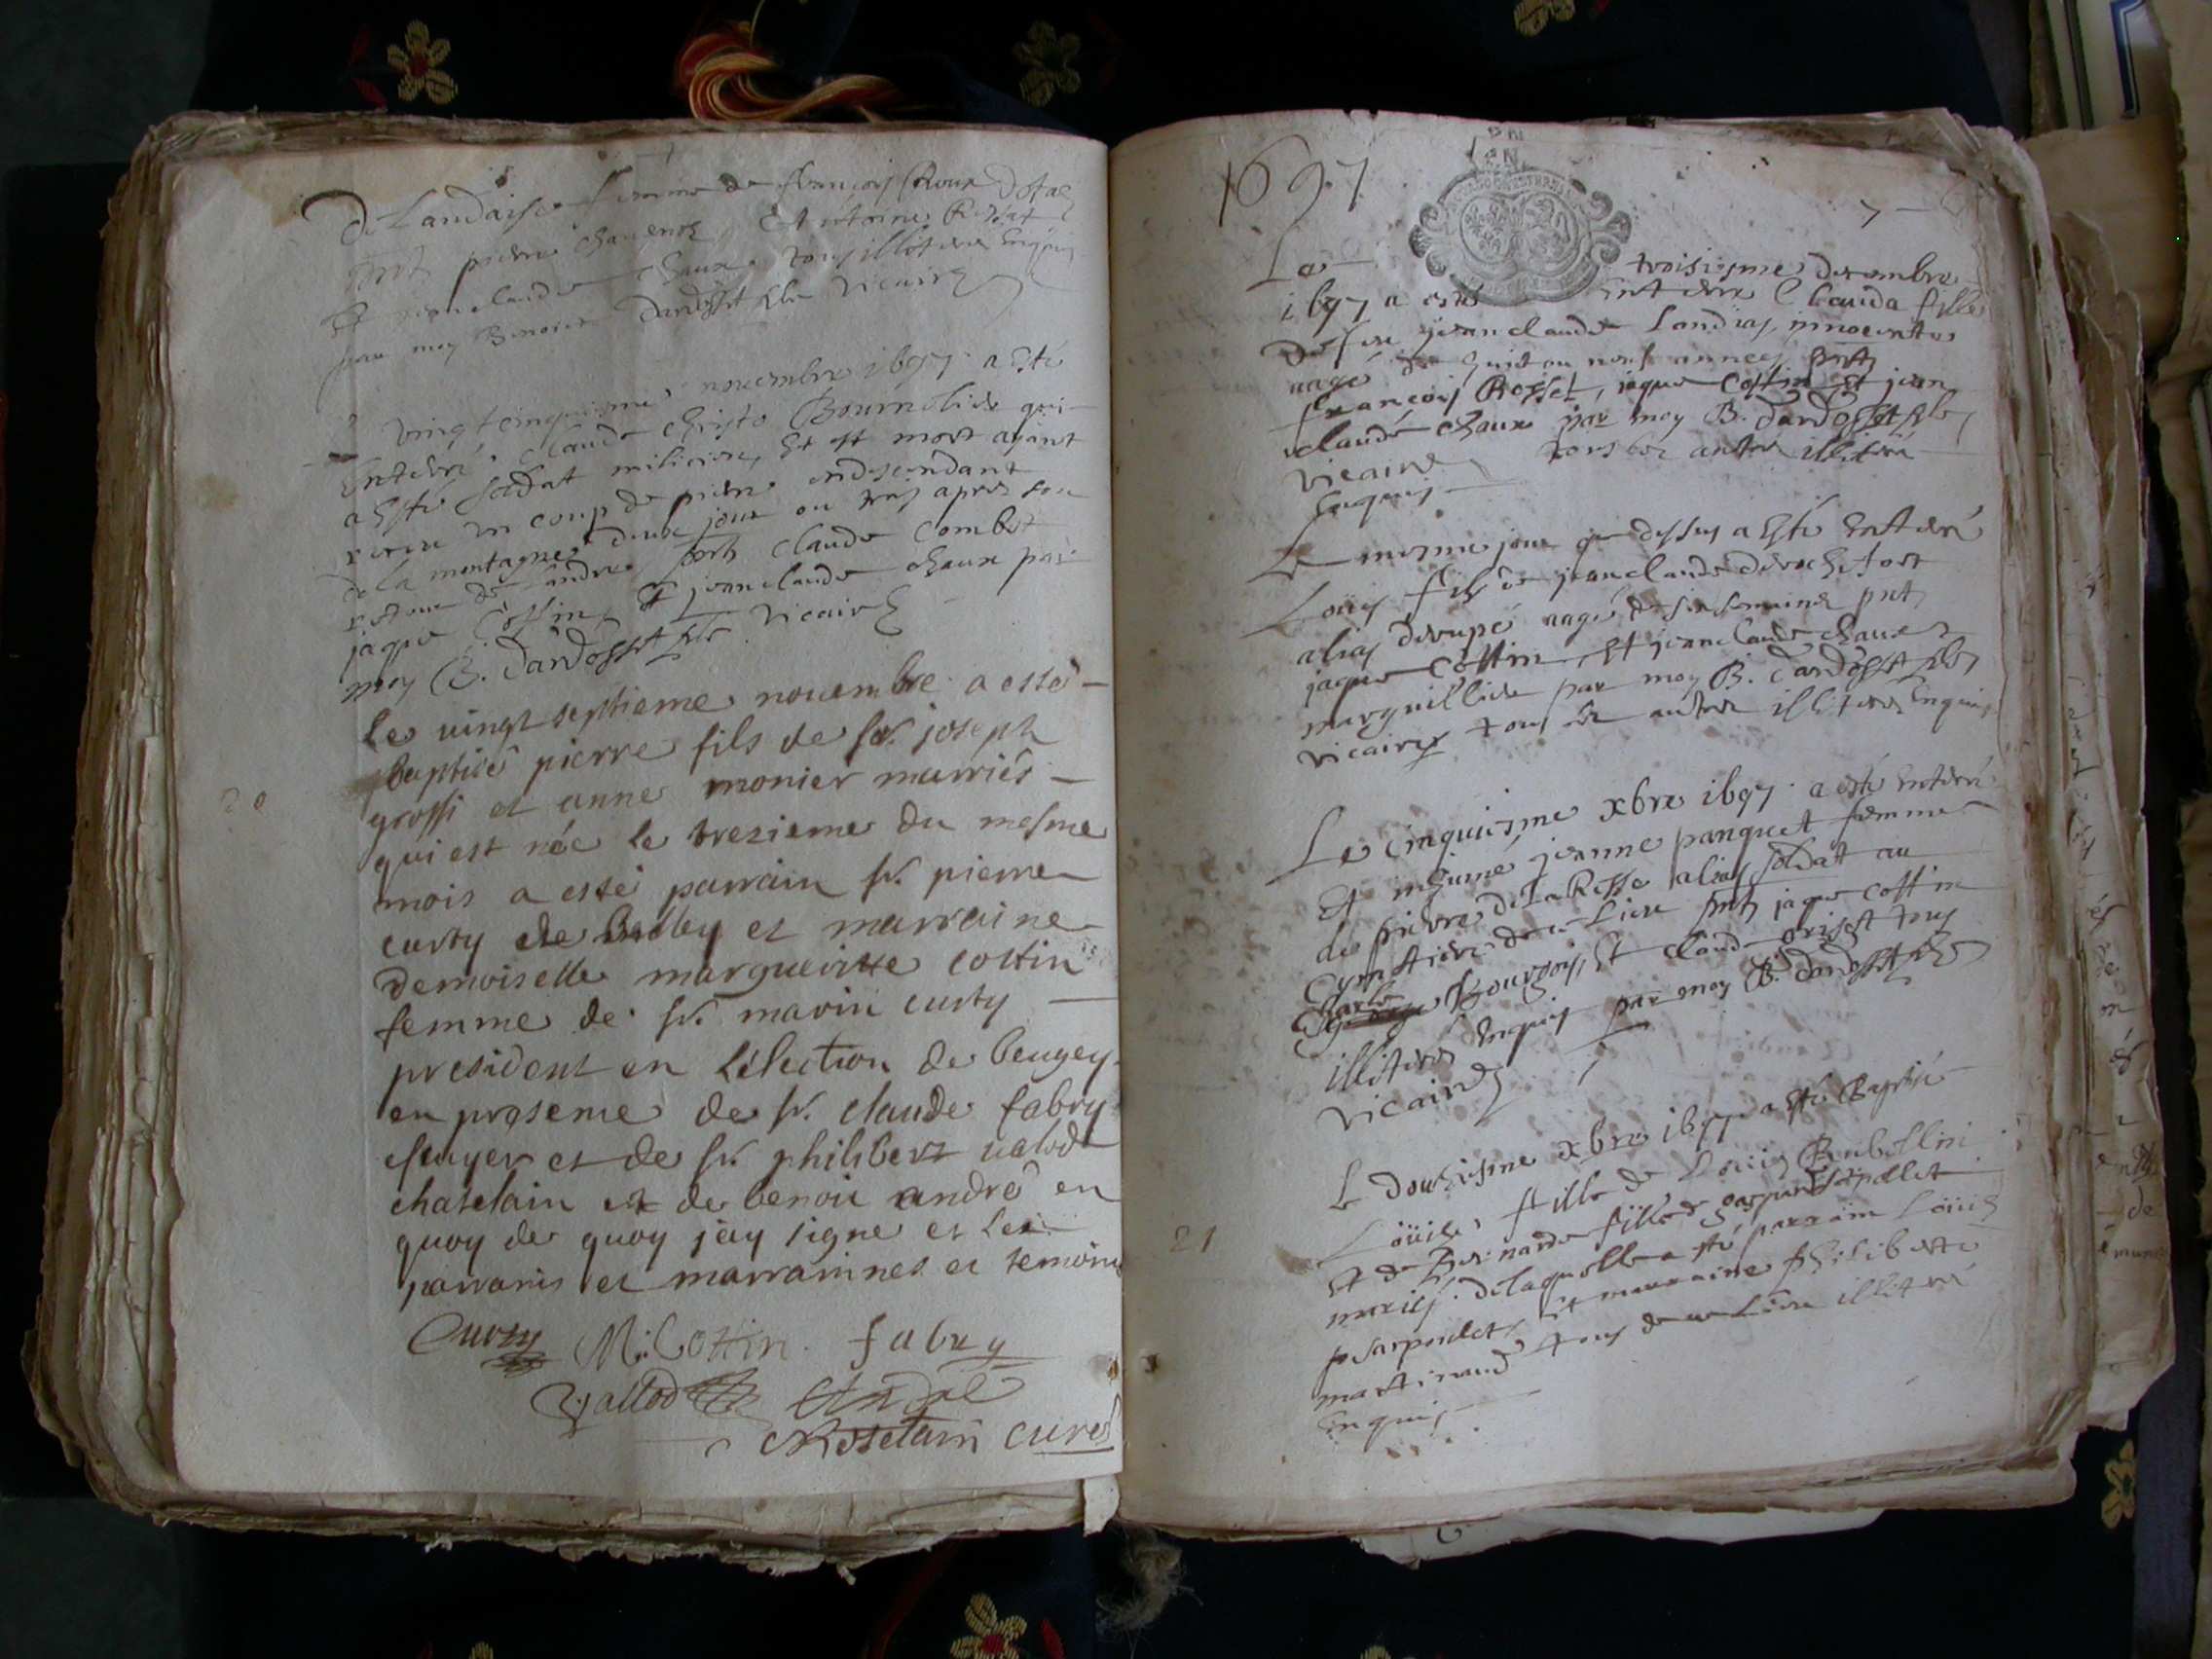 De Landaise femme de françois Roux dotas
pnts pierre chavent Antoine
Et jeanclaude chaux tous illiteres enquis
par moy Benoict Dardosset pbre vicaire
vingtcinquiesme novembre 1697 a esté
Enterré Claude christo qui
a esté soldat milicien, Et est mort ayant
receu un coup de pierre endescendant
de la montagne deux jour ou trois apres son
retour de pnts claude Combet
jaque Costin, Et jeanclaude chaux par
moy B. Dardosset pbr vicaire
le vingt septieme novembre a esté
20
baptisé pierre fils de sr. joseph
grossi et anne monier marriés
qui est née le trezieme du mesme
mois a esté parrain sr. pierre
curty de belley et marraine
Demoiselle margueritte costin
femme de sr. marin curty
president en lélection de beugey
en presence de sr. claude fabry
escuyer et de sr. philibert valod
chatelain et de benoit andré en
quoy de quoy jay signe et les
parrains et marrainnes et temoins
Curty M. Costin. fabry
Vallod André
Rosetain curé
1697
7
Le troisiesme decembre
1697 a esté enterré Clauda fille
de feu jeanclaude Landras, innocente
aagé de huict ou neuf années pnts
françois Rosset, jaque Costin Et jean
claude chaux par moy B. Dardosset pbr
vicaire tous les autres illiteré
Enquis
Le mesme jour que dessus a esté Enterré
Louys fils de jeanclaude derochefort
alias derupé aagé de six semaines pnts
jaque Costin, Et jeanclaude chaux
marguillier par moy B. Dardosset pbr
vicaire tous les autres illiteres Enquis
Le cinquiesme xbre 1697 a esté enterré
Et inhumé jeanne panquet femme
de pierre De la Resse alias soldat au
Cymetiere de ce Lieu pnts jaque costin
Charle Bourgois, Et claude griset tous
illiteres Enquis par moy B. Dardosset pbr
vicaire
Le douziesme xbre 1697 a esté Baptisé
21
Loüise fille de Louis
Et de Bernarde fille de gaspard
mariés. delaquelle a esté parrain Loüis
Et marraine philiberte
martinand tous de ce Lieu illiteré
Enquis